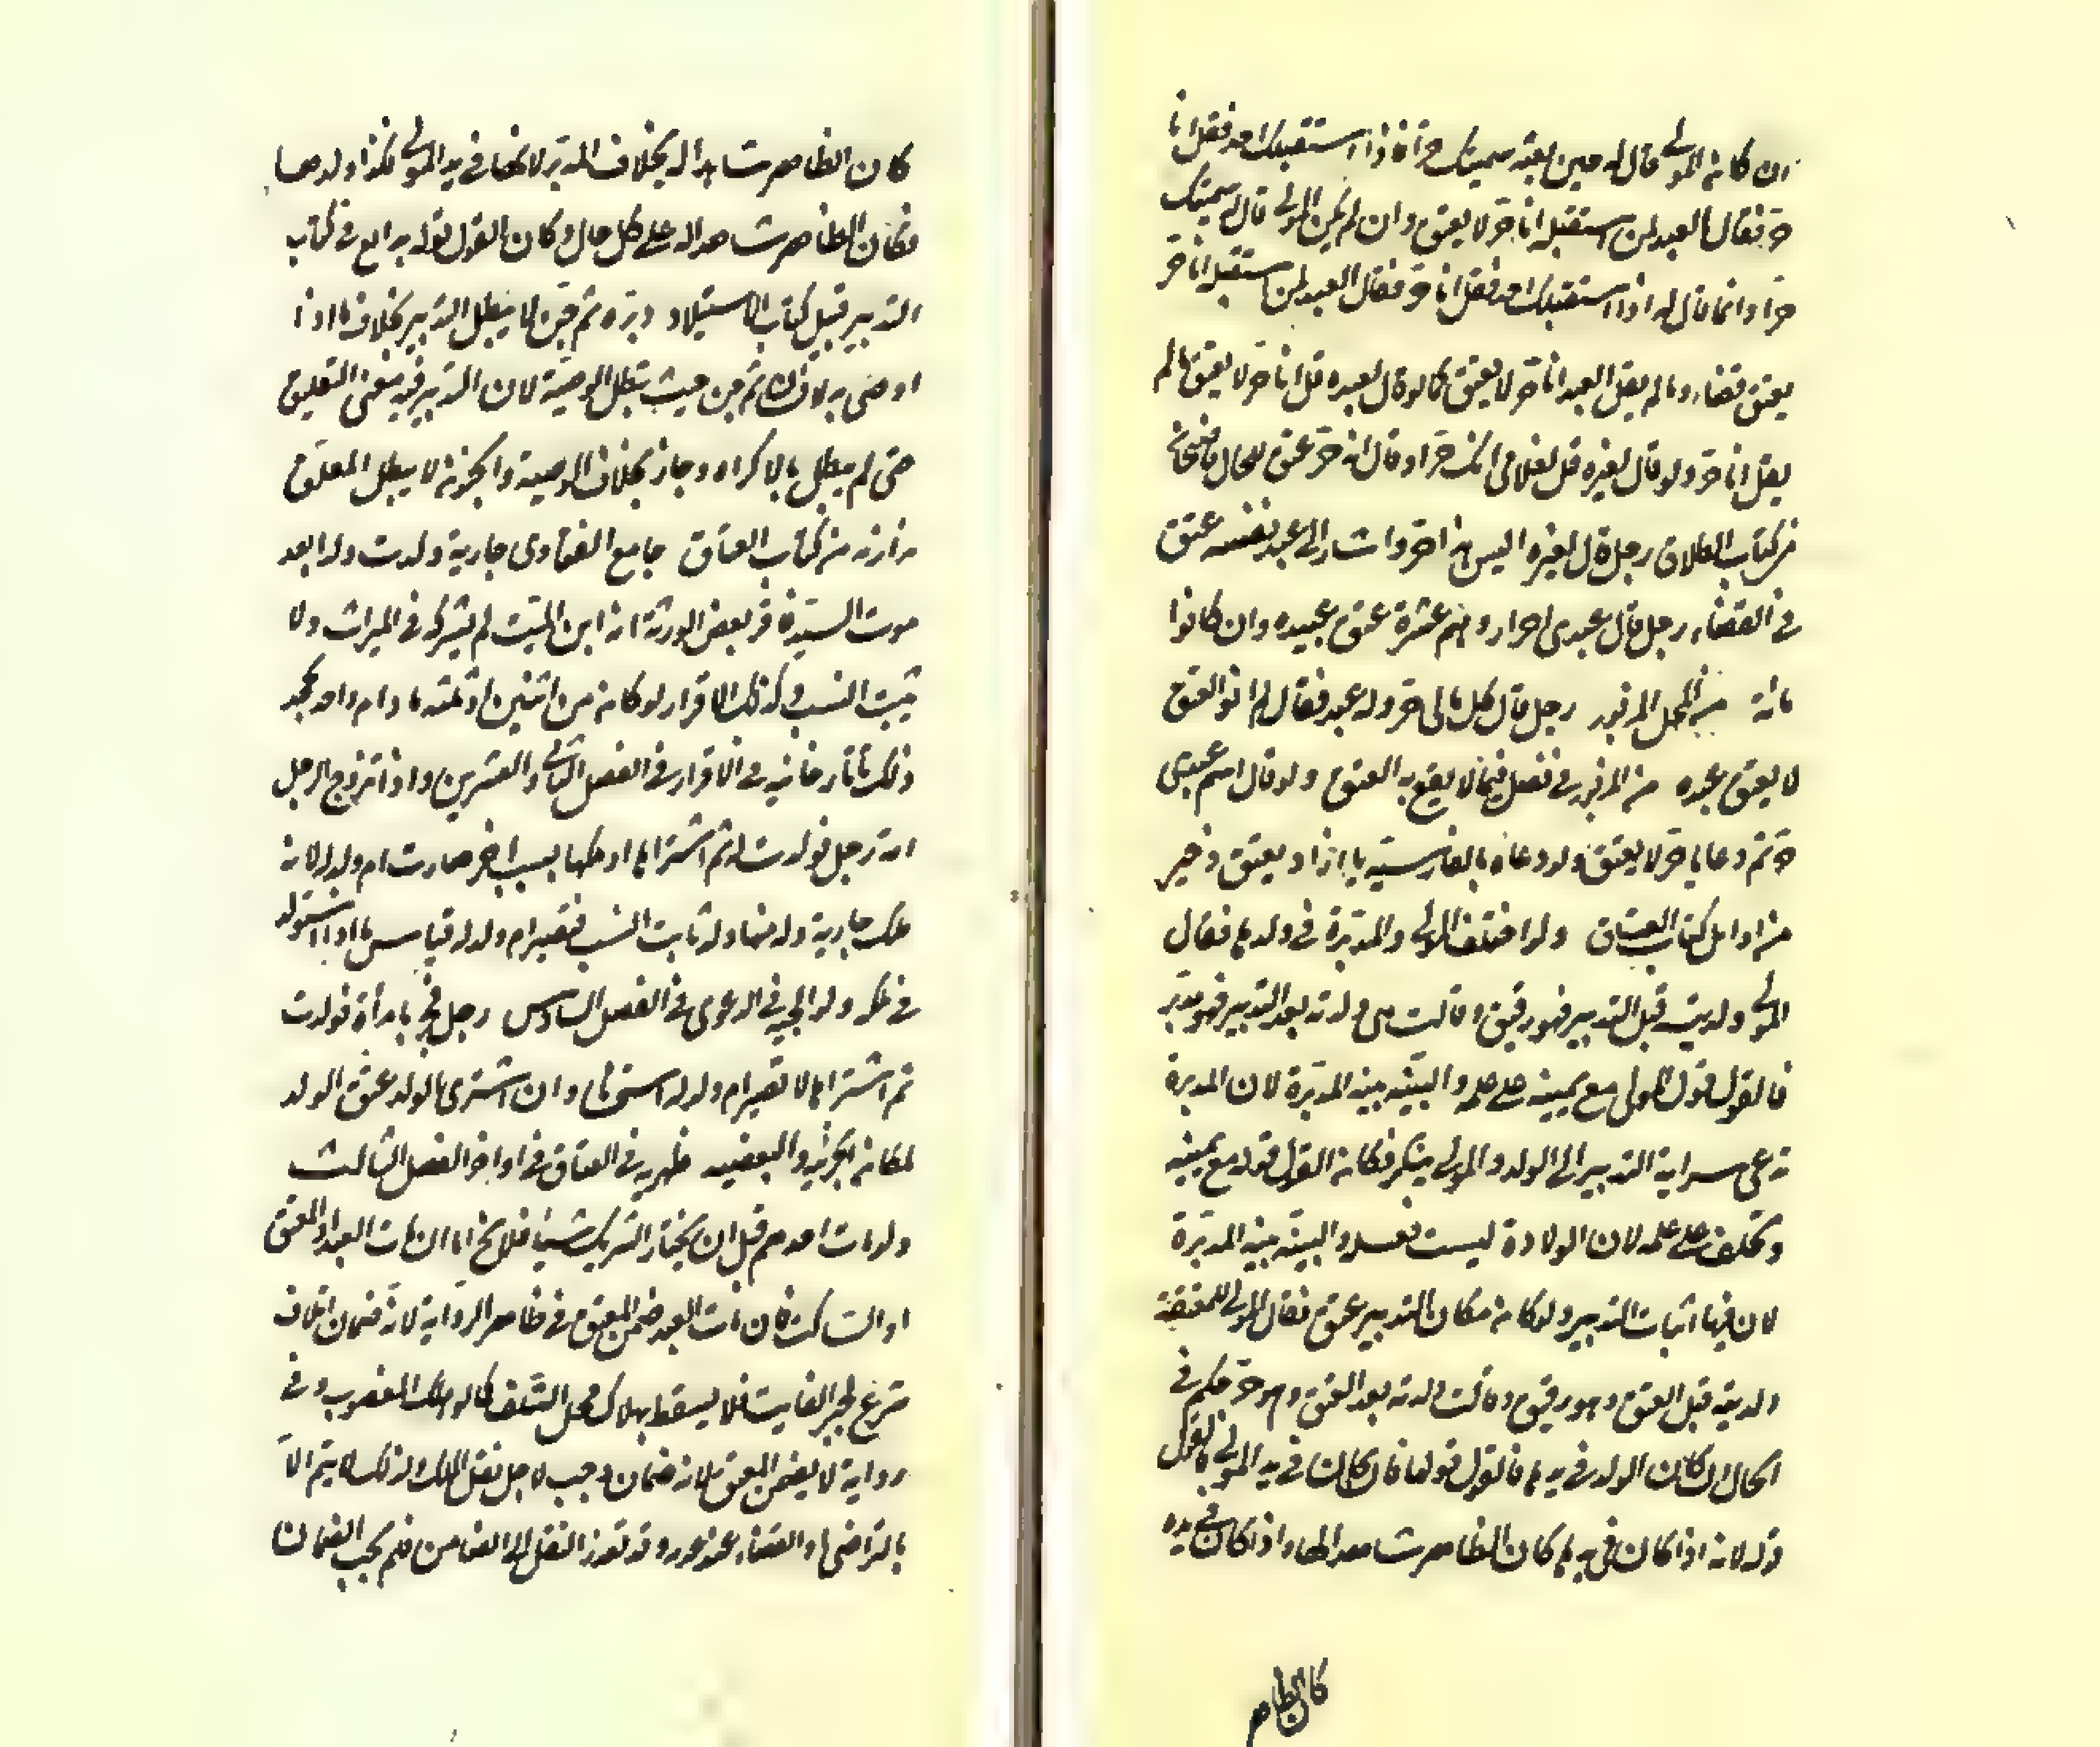 ان كان المولى قال له حين بعثه سميتك حرا فاذا استقبلك احد فقل انا
حر فقال العبد لمن استقبله انا حر لا يعتق وان لم يكن المولى قال له سميتك
حرا وانما قال له اذا استقبلك احد فقل انا حر فقال العبد لمن استقبله انا حر
يعتق قضاء وما لم يقل العبد انا حر لا يعتق كما لو قال لعبده قل انا حر لا يعتق ما لم
يقل انا حر ولو قال لغيره قل لغلامى انك حر او قال انه حر عتق للحال قاضيخان
من كتاب الطلاق رجل قال لغيره اليس هذا حر واشار الى عبد نفسه عتق
فى القضاء رجل قال عبيدى احرار وهم عشرة عتق عبيده وان كانوا
مائة من المحل المزبور رجل قال كل مالى حر وله عبد فقال لم انو العتق
لا يعتق عبده من المزبور فى فصل فيما لا يقع به العتق ولو قال اسم عبدى
حر ثم دعا يا حر لا يعتق ولو دعاه بالفارسية يا ازاد يعتق ذخيره
من اوائل كتاب العتاق ولو اختلف المولى والمدبرة فى ولدها فقال
المولى ولدتيه قبل التدبير فهو رقيق وقالت هى ولدته بعد التدبير فهو مدبر
فالقول قول المولى مع يمينه على علمه والبينة بينة المدبرة لان المدبرة
تدعى سراية التدبير الى الولد والمولى ينكر فكان القول قوله مع يمينه
ويحلف على علمه لان الولادة ليست فعله والبينة بينة المدبرة
لان فيها اثبات التدبير ولو كان مكان التدبير عتق فقال المولى للمعتقة
ولدتيه قبل العتق وهو رقيق وقالت ولدته بعد العتق وهو حر يحكم فى
الحال ان كان الولد فى يدها فالقول قولها فان كان فى يد المولى فالقول
قوله لانه اذا كان فى يدها كان الظاهر شاهدا لها واذا كان فى يده
كان الظاهر
كان الظاهر شاهدا له بخلاف المدبر لانها فى يد المولى فكذا ولدها
فكان الظاهر شاهدا له على كل حال وكان القول قوله بدايع فى كتاب
التدبير قبيل كتاب الاستيلاد دبره ثم جن لا يبطل التدبير بخلاف ما اذا
اوصى برقبته ثم جن حيث تبطل الوصية لان التدبير فيه معنى التعليق
حتى لم يبطل بالاكراه وجاز بخلاف الوصية والجنون لا يبطل المعلق
بزازيه من كتاب العتاق جامع الفتاوى جارية ولدت ولدا بعد
موت السيد فاقر بعض الورثة انه ابن الميت لم يشركه فى الميراث ولا
يثبت النسب وكذلك الاقرار لو كان من اثنين او ثلثة ما دام واحد يجحد
ذلك تاتارخانيه فى الاقرار فى الفصل الثانى والعشرين واذا تزوج الرجل
امة رجل فولدت له ثم اشتراها او ملكها بسبب اخر صارت ام ولد له لانه
ملك جارية وله منها ولد ثابت النسب فتصير ام ولد له قياس ما اذا استولد
فى ملكه ولوالجيه فى الدعوى فى الفصل السادس رجل فجر بامرأة فولدت
ثم اشتراها لا تصير ام ولد له استحسانا وان اشترى الولد عتق الولد
لمكان الجزئية والبعضيه ظهيريه فى العتاق فى اواخر الفصل الثالث
ولو مات احدهم قبل ان يختار الشريك شيئا فلا يخ اما ان مات العبد او المعتق
او الساكت فان مات العبد ضمن المعتق فى ظاهر الرواية لانه ضمان اتلاف
شرع لجبر الفايت فلا يسقط بهلاك محل التلف كما لو هلك المغصوب وفى
رواية لا يضمن المعتق لانه ضمان وجب لاجل نقل الملك وذلك لا يتم الا
بالتراضى او القضاء عند وقد تعذر النقل الى الضامن فلم يجب الضمان